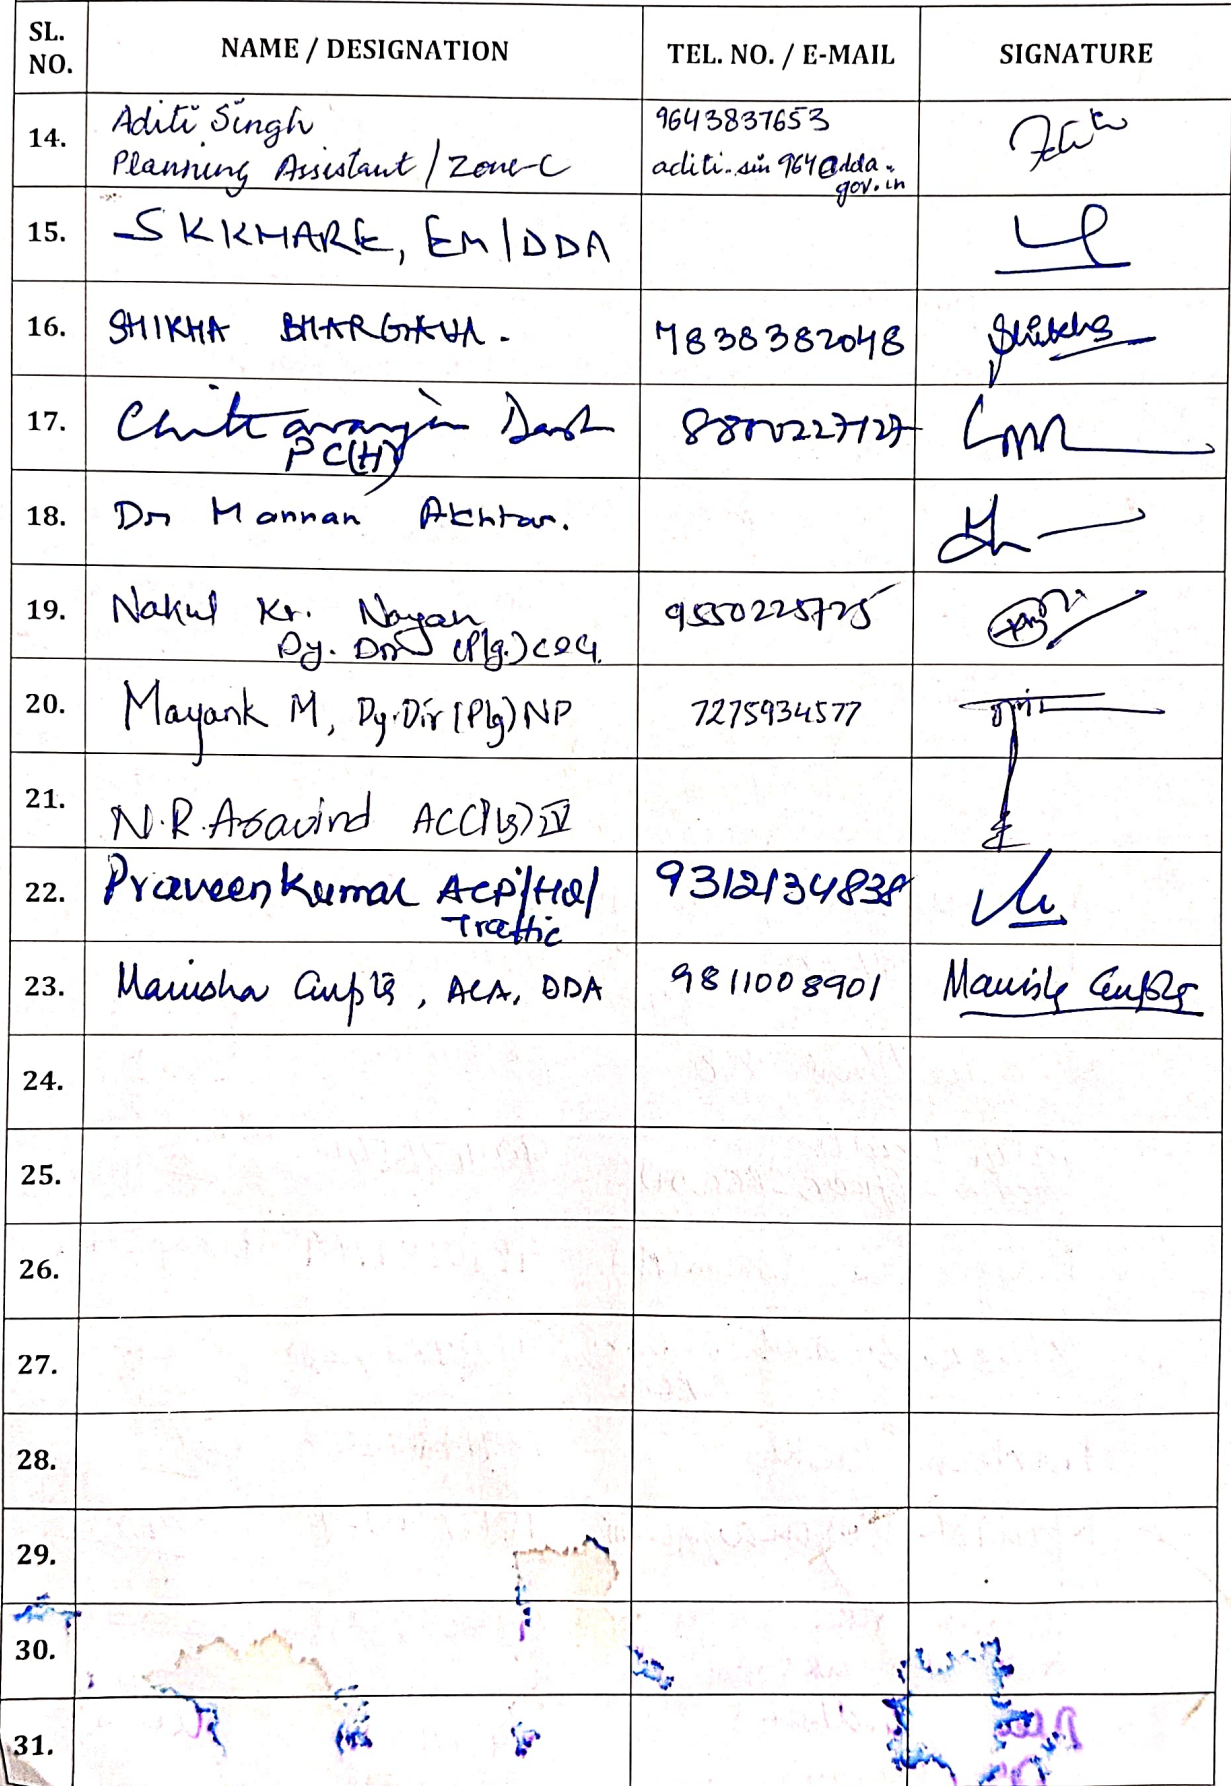 SL. NO. NAME / DESIGNATION TEL. NO. / E-MAIL SIGNATURE
14. Aditi Singh 9643837653
Planning Assistant / Zone-C aditi.sin964@dda.
gov.in
15. S K KHARE, EM/DDA
16. SHIKHA BHARGAVA. 7838382048 Shikha
17. Chittaranjan Dash 8800227127
PC(H)
18. Dr Mannan Akhtar.
19. Nakul Kr. Nayan 9550225725
Dy. Dir (Plg.)
20. Mayank M, Dy.Dir (Plg) NP 7275934577
21. N.R. Aravind AC(Plg) IV
22. Praveen Kumar ACP/HQ/ 9312134838
Traffic
23. Manisha Gupta, ACA, DDA 9811008901 Manisha Gupta
24.
25.
26.
27.
28.
29.
30.
31.